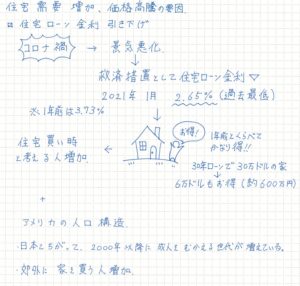 住宅需要 増加、価格高騰の要因
住宅ローン金利 引き下げ
コロナ禍 → 景気悪化
↓
救済措置として住宅ローン金利▽
2021年 1月 2.65% (過去最低)
※1年前は3.73%
↓
お得!
1年前とくらべて
かなり得!!
住宅買い時
と考える人増加
←
30年ローンで30万ドルの家
↓
6万ドルもお得(約600万円)
+
アメリカの人口構造
・日本とちがって、2000年以降に成人をむかえる世代が増えている。
・郊外に家を買う人増加